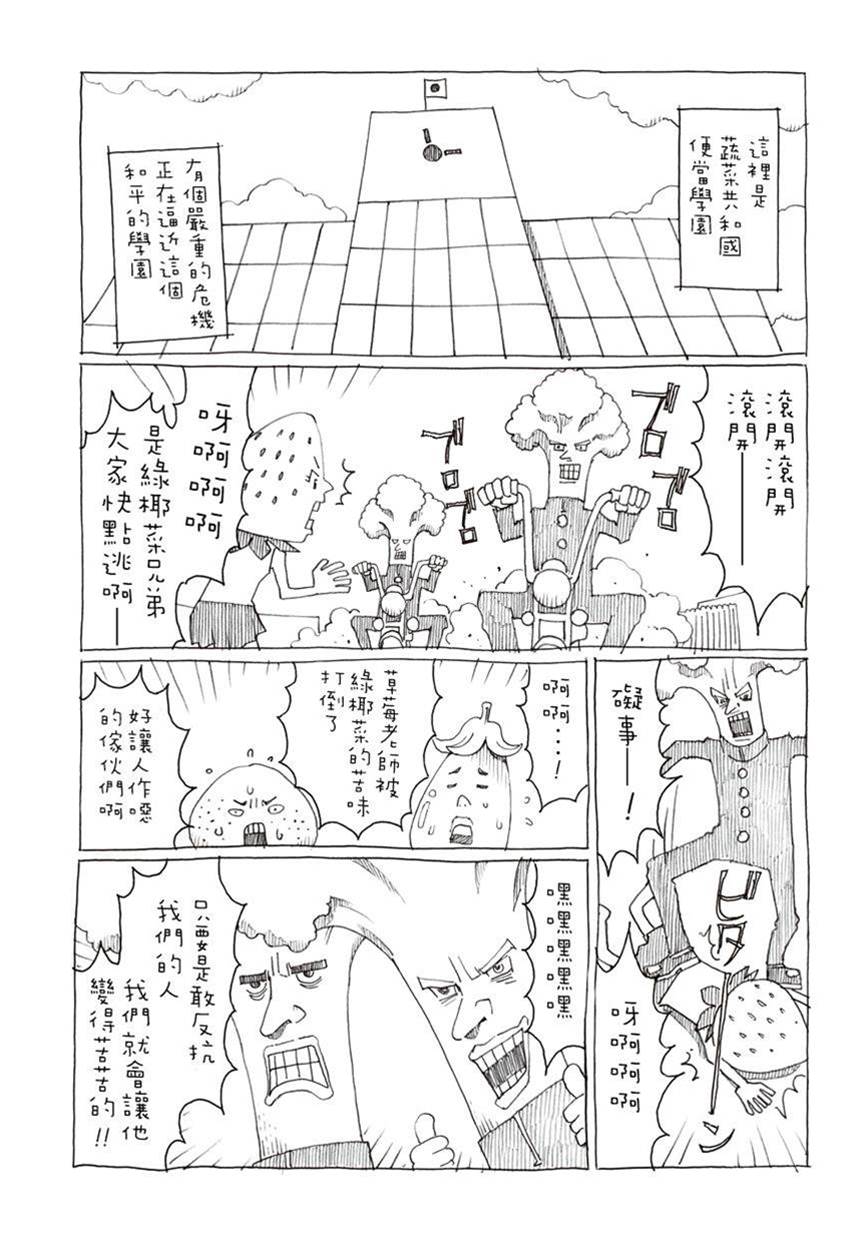 這裡是
蔬菜共和國
便當學園
有個嚴重的危機
正在逼近這個
和平的學園
滾開滾開
滾開——
ブロロ
ブロロ
呀啊啊啊
是綠椰菜兄弟
大家快點逃啊——
礙事—！
ビタ
呀啊啊啊
啊啊…！
草莓老師被
綠椰菜的苦味
打倒了
好讓人作噁
的傢伙們啊
嘿嘿嘿嘿嘿
只要是敢反抗
我們的人
我們就會讓他
變得苦苦的!!